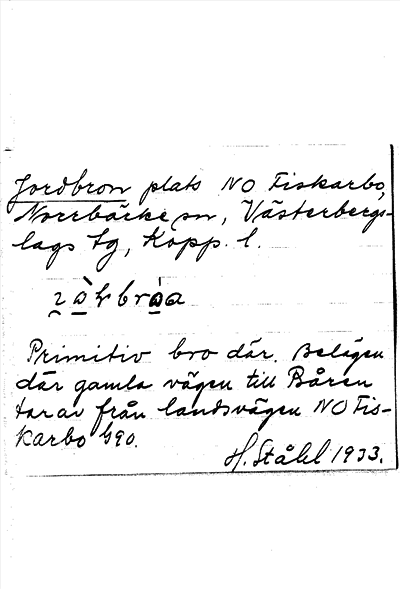 Jordbron plats NO Fiskarbo,
Norrbärke sn, Västerbergs-
lags tg, Kopp. l.
Primitiv bro där. Belägen
där gamla vägen till Båren
tar av från landsvägen NO Fis-
karbo 490.
H. Ståhl 1933.